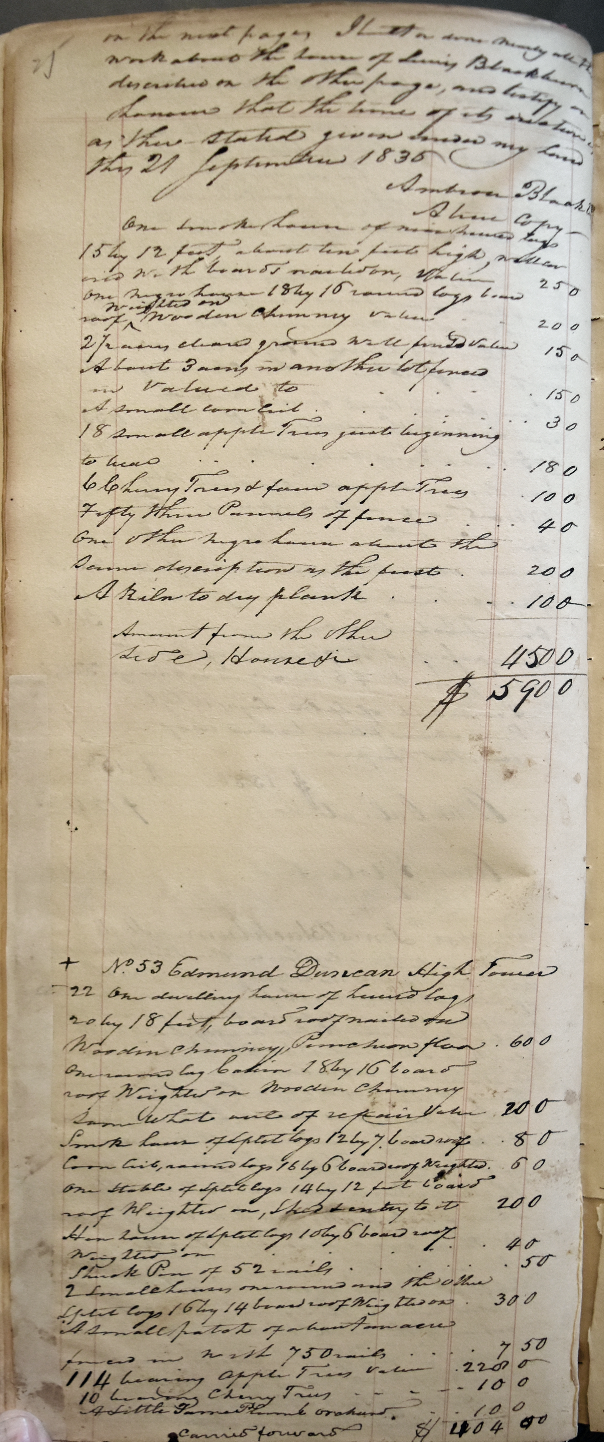 25
on the next page, I built or done nearly all the
work about the house of Lewis Blackburn
described on the other page, and testify on
honour that the time of its erection is
as there stated given under my hand
this 21 September 1835
Ambrose Black
A true Copy
One smoke house of nine hewed logs
15 by 12 feet about ten feet high, well cov
ered with boards nailed on, Value 250
One negro house 18 by 16 round logs board
roof weighted on Wooden Chimney value 200
2 1/2 acres cleared ground well fenced value 150
About 3 acres in another lot fenced
in Valued to 150
A small corn crib 30
18 small apple Trees just beginning
to bear 180
6 Cherry Trees & four apple Trees 100
Fifty three Pannels of fence 40
One other negro house about the
same description as the first 200
A Kiln to dry plank 100
Amount from the other
side, House &c 4500
$ 5900
+ No. 53 Edmund Duncan High Tower
22 One dwelling house of hewed logs
20 by 18 feet, board roof nailed on
Wooden Chimney, Puncheon floor 600
One round log Cabin 18 by 16 board
roof Weighted on Wooden Chimney
Somewhat out of repair Value 200
Smoke house of Split logs 12 by 7 board roof 80
Corn Crib, round logs 16 by 6 board roof Weighted 60
One stable of Split logs 14 by 12 feet board
roof Weighted on, entry to it 200
Hen house of Split logs 10 by 6 board roof
Weighted on 40
Shuck Pen of 52 rails 50
2 Small houses one round and the other
Split logs 16 by 14 board roof Weighted on 300
A small patch of about an acre
fenced in with 750 rails 7 50
114 bearing apple Trees Value 2280
10 bearing Cherry Trees 100
A Little Tame Plumb orchard 100
carried forward $ 404 00